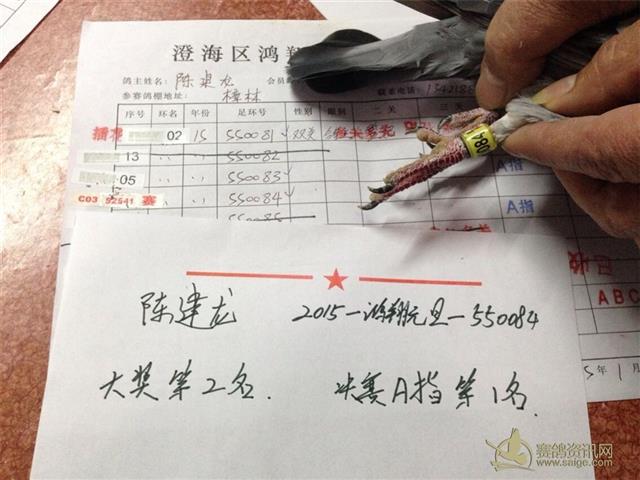 澄海区鸿翔
鸽主姓名: 陈建龙 会员 联系电话:
参赛鸽棚地址: 樟林
序号 环名 年份 足环号 性别 眼砂 二关 三关
02 15 550081 双关
13 〃 〃 550082
05 〃 〃 550083 A指
C03 52541 赛 〃 〃 550084 A指
550085
ABC
年1月
084
陈建龙 2015-鸿翔元旦-550084
大奖第2名. 决赛A指第1名.
赛鸽资讯网
www.saige.com